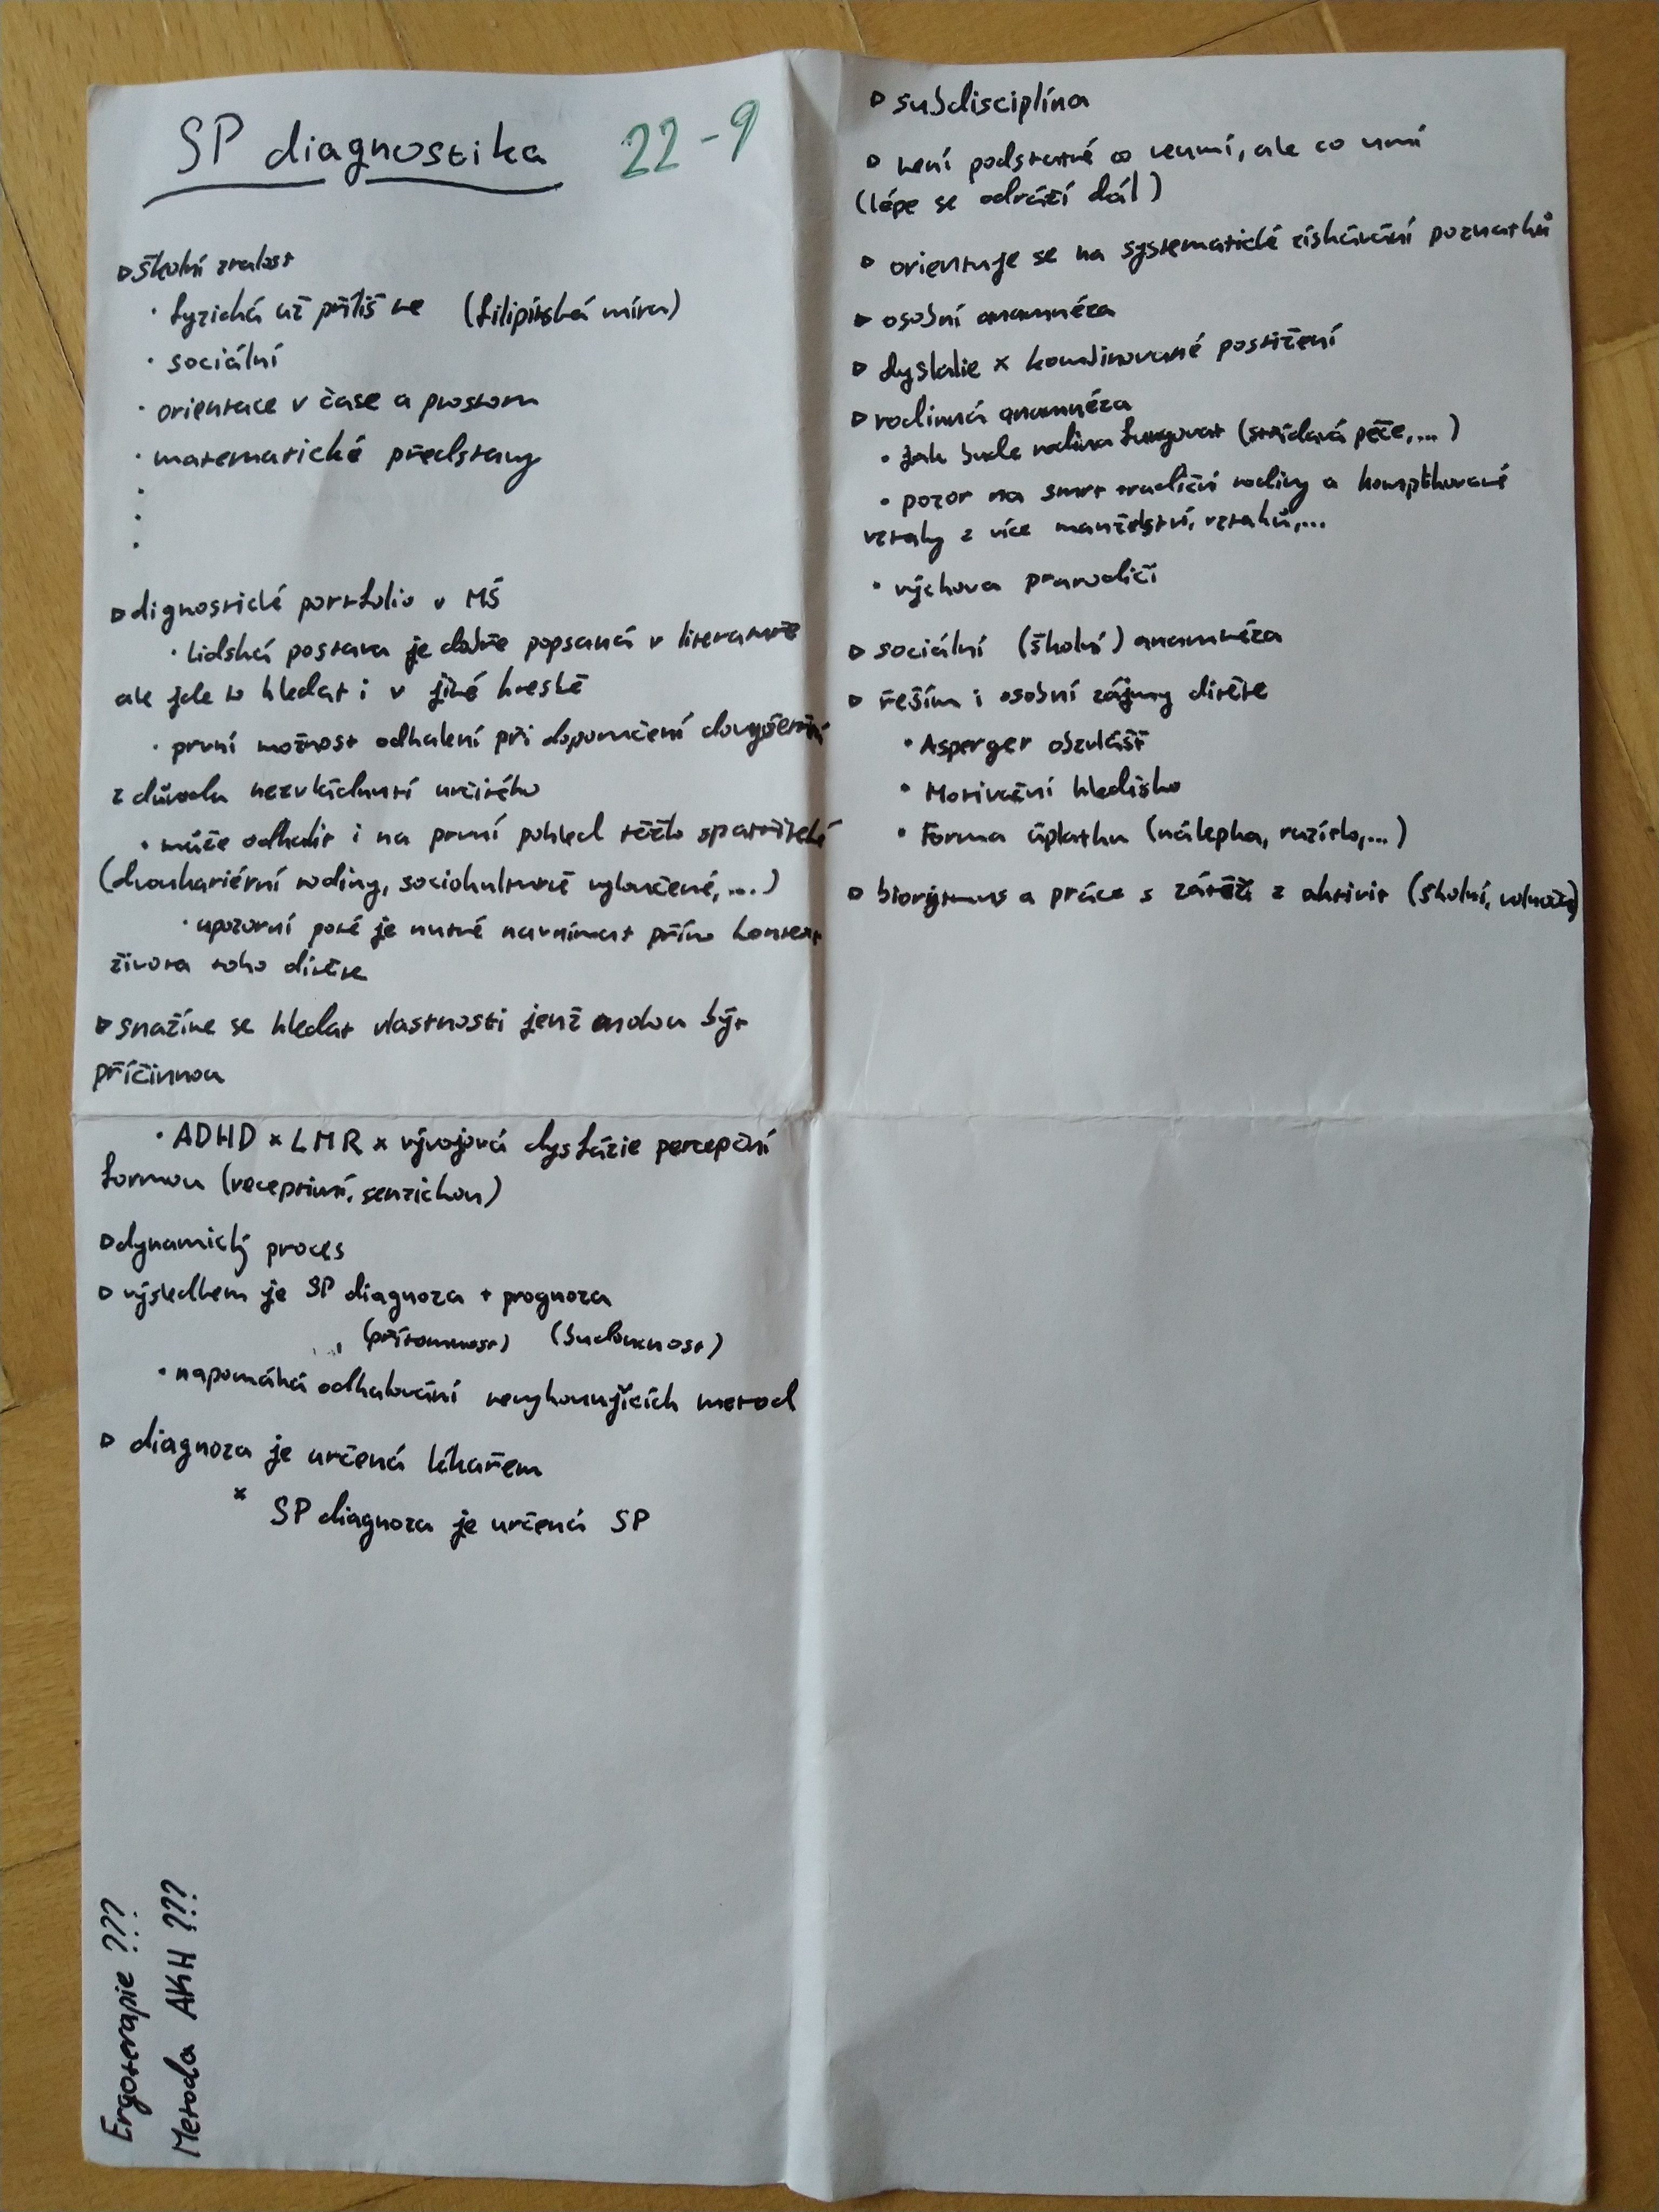 SP diagnostika 22-9
▷ školní zralost
· fyzická už příliš ne (filipínská míra)
· sociální
· orientace v čase a prostoru
· matematické představy
·
·
·
▷ dignostické portfolio v MŠ
· lidská postava je dobře popsaná v literatuře
ale jde to hledat i v jiné kresbě
· první možnost odhalení při doporučení
z důvodu nezvládnutí určitého
· může odhalit i na první pohled těžko spatřitelé
(dvoukariérní rodiny, sociokulturně vyloučené, ...)
· upozorní poté je nutné navnímat přímo kontext
života toho dítěte
▷ snažíme se hledat vlastnosti jenž mohou být
příčinnou
· ADHD × LMR × vývojová dysfázie percepční
formou (receptivní, senzickou)
▷ dynamický proces
▷ výsledkem je SP diagnoza + prognoza
(přítomnost) (budoucnost)
· napomáhá odhalování nevyhovujících metod
▷ diagnoza je určená lékařem
× SP diagnoza je určená SP
Ergoterapie ???
Metoda AKH ???
▷ subdisciplína
▷ není podstatné co neumí, ale co umí
(lépe se odráží dál)
▷ orientuje se na systematické získávání poznatků
▷ osobní anamnéza
▷ dyslalie × kombinované postižení
▷ rodinná anamnéza
· jak bude rodina fungovat (střídavá péče, ...)
· pozor na smrt tradiční rodiny a komplikované
vztahy z více manželství, vztahů, ...
· výchova prarodiči
▷ sociální (školní) anamnéza
▷ řeším i osobní zájmy dítěte
· Asperger obzvlášť
· Motivační hledisko
· Forma úplatku (nálepka, razítko, ...)
▷ biorytmus a práce s zátěží z aktivit (školní,